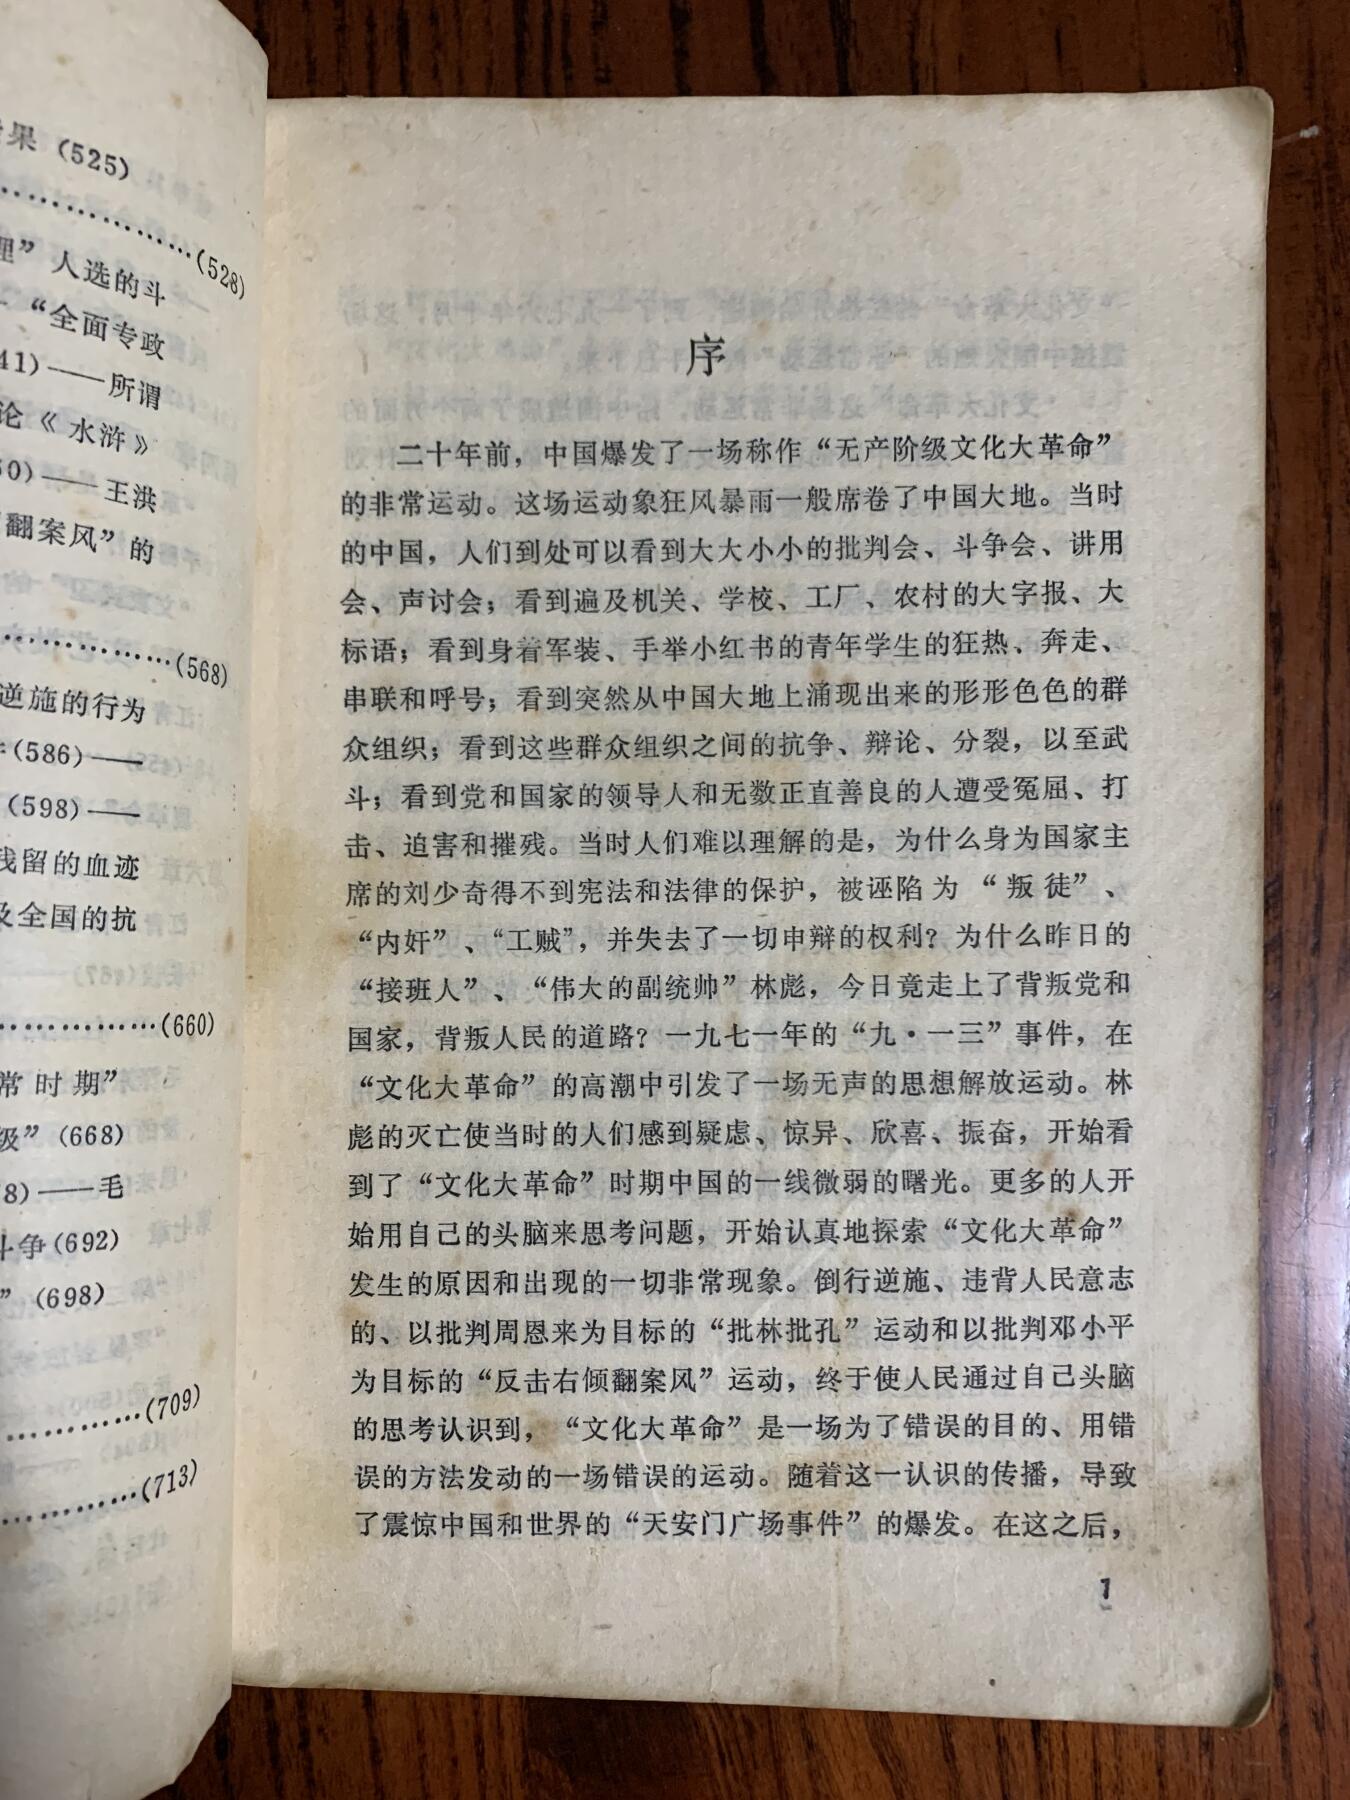 果 (525)
(528)
” 人选的斗
“全面专政
41)——所谓
论《水浒》
50)——王洪
翻案风”的
(568)
逆施的行为
(586)——
(598)——
残留的血迹
及全国的抗
(660)
常时期”
级” (668)
8)——毛
斗争(692)
” (698)
(709)
(713)
序
二十年前，中国爆发了一场称作“无产阶级文化大革命”
的非常运动。这场运动象狂风暴雨一般席卷了中国大地。当时
的中国，人们到处可以看到大大小小的批判会、斗争会、讲用
会、声讨会；看到遍及机关、学校、工厂、农村的大字报、大
标语；看到身着军装、手举小红书的青年学生的狂热、奔走、
串联和呼号；看到突然从中国大地上涌现出来的形形色色的群
众组织；看到这些群众组织之间的抗争、辩论、分裂，以至武
斗；看到党和国家的领导人和无数正直善良的人遭受冤屈、打
击、迫害和摧残。当时人们难以理解的是，为什么身为国家主
席的刘少奇得不到宪法和法律的保护，被诬陷为“叛徒”、
“内奸”、“工贼”，并失去了一切申辩的权利？为什么昨日的
“接班人”、“伟大的副统帅”林彪，今日竟走上了背叛党和
国家，背叛人民的道路？一九七一年的“九·一三”事件，在
“文化大革命”的高潮中引发了一场无声的思想解放运动。林
彪的灭亡使当时的人们感到疑虑、惊异、欣喜、振奋，开始看
到了“文化大革命”时期中国的一线微弱的曙光。更多的人开
始用自己的头脑来思考问题，开始认真地探索“文化大革命”
发生的原因和出现的一切非常现象。倒行逆施、违背人民意志
的、以批判周恩来为目标的“批林批孔”运动和以批判邓小平
为目标的“反击右倾翻案风”运动，终于使人民通过自己头脑
的思考认识到，“文化大革命”是一场为了错误的目的、用错
误的方法发动的一场错误的运动。随着这一认识的传播，导致
了震惊中国和世界的“天安门广场事件”的爆发。在这之后，
1